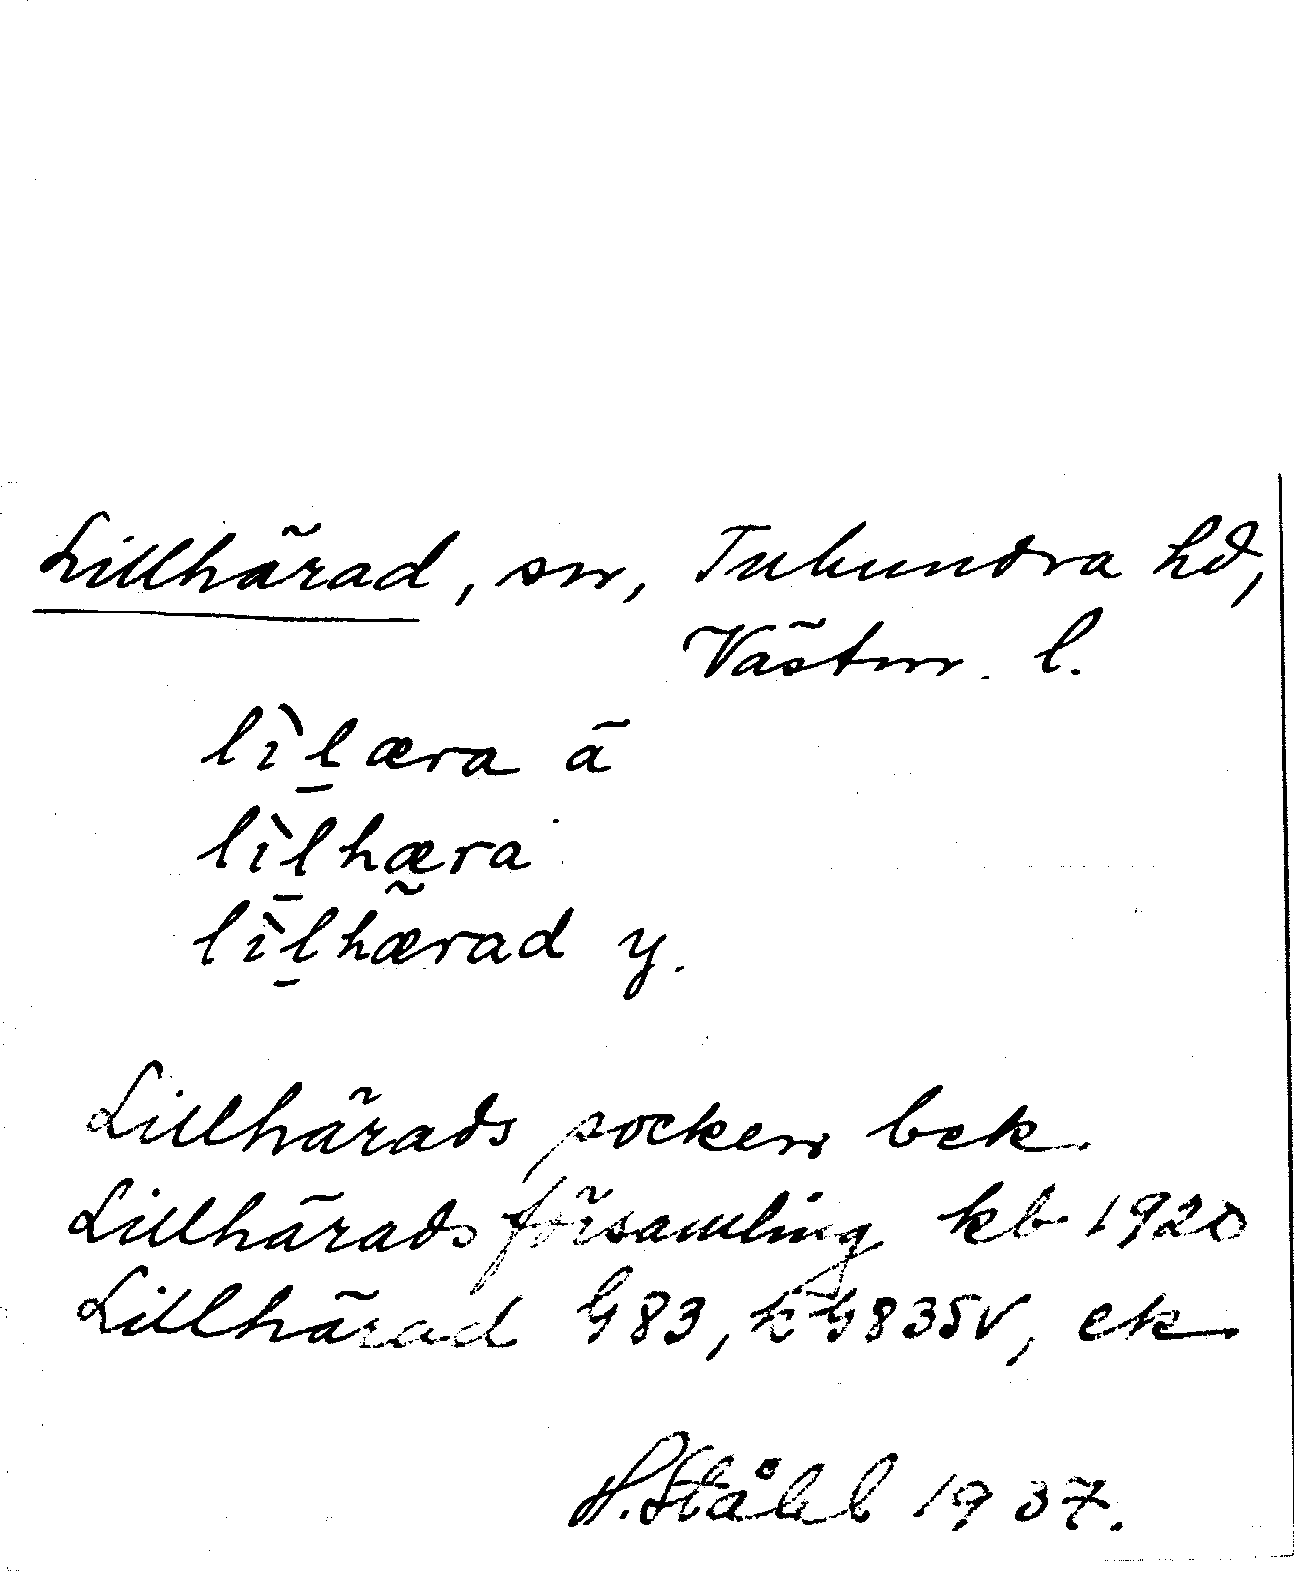 Lillhärad, sn, Tuhundra hd,
Västm. l.
lìl̲æra ä
lìl̲hæra
lìl̲hærad y.
Lillhärads socken bek.
Lillhärads församling kb 1920
Lillhärad G83, k G83SV, ek
H. Ståhl 1937.